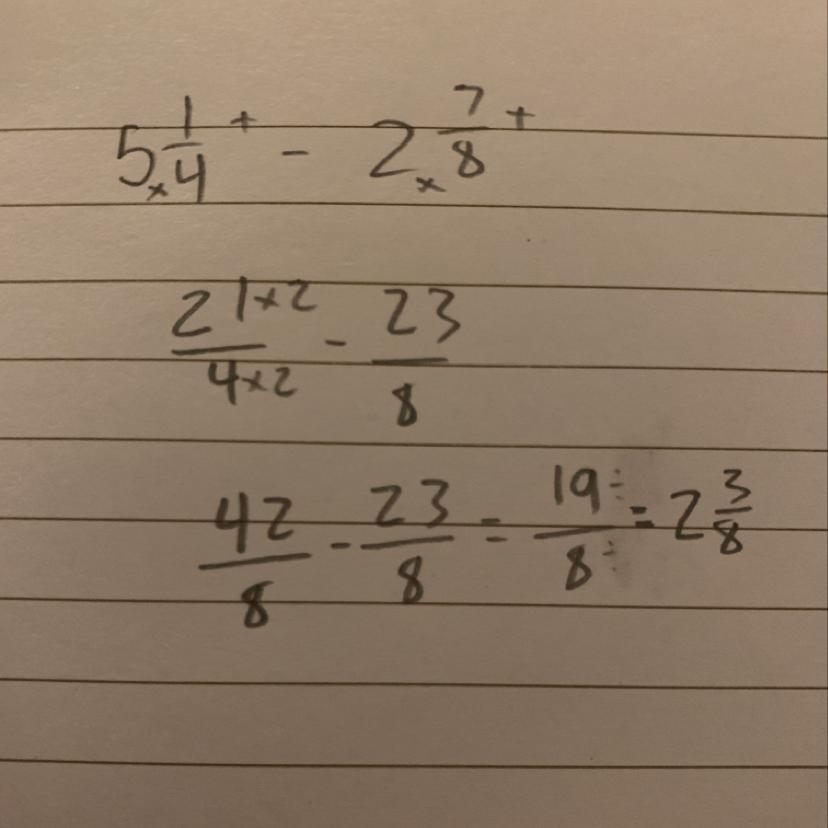 5 × 1/4 + - 2 × 7/8 +
21×2/4×2 - 23/8
42/8 - 23/8 = 19÷/8÷ = 2 3/8